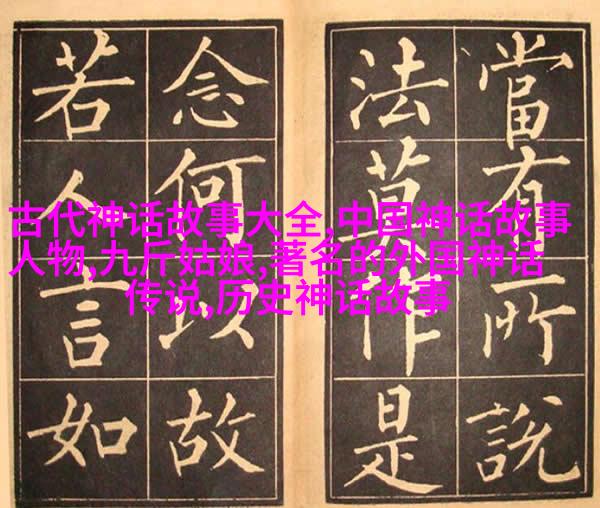 當有所說
法莫作是
念何以故
若人言如
古代神话故事大全,中国神话故事
人物,九斤姑娘,著名的外国神话
传说,历史神话故事